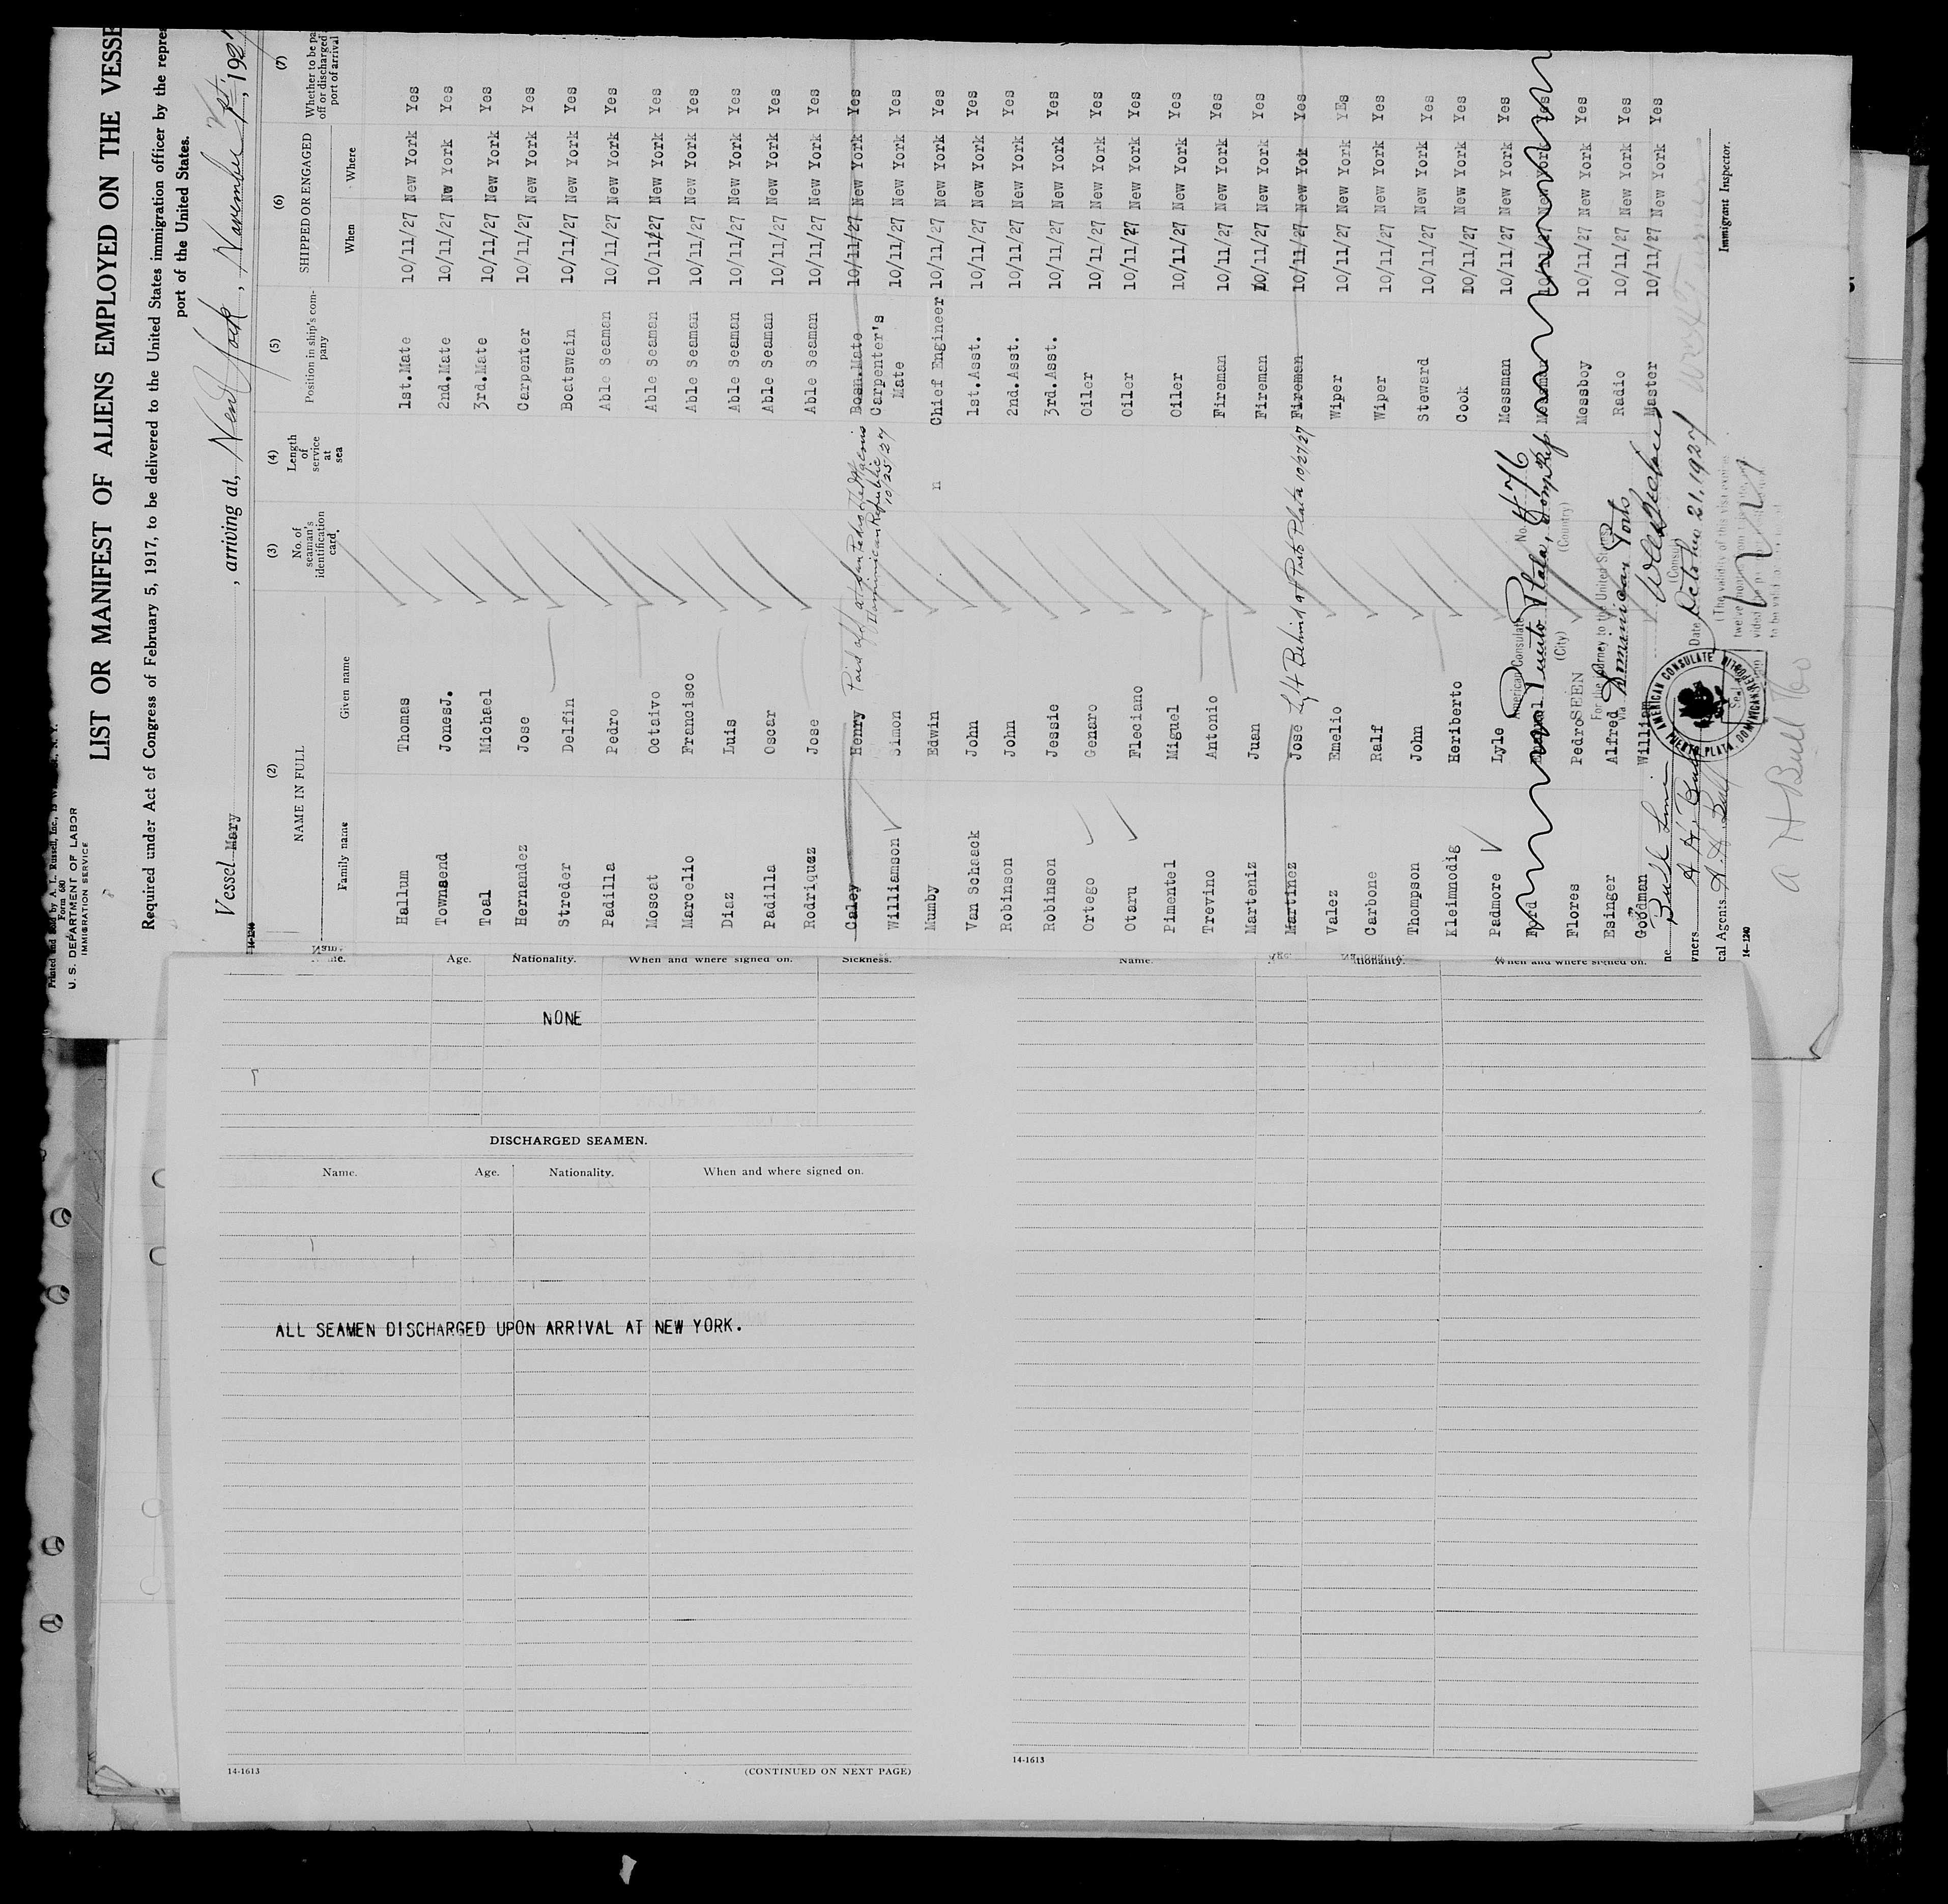 Printed and Sold by A. L. Russell, Inc.,
Form 680
U. S. DEPARTMENT OF LABOR
IMMIGRATION SERVICE
LIST OR MANIFEST OF ALIENS EMPLOYED ON THE VESSE
Required under Act of Congress of February 5, 1917, to be delivered to the United States immigration officer by the repre
port of the United States.
Vessel Mary , arriving at, New York , November 1st , 1927
14-1240
(2) (3) (4) (5) (6) (7)
NAME IN FULL
No. of seaman's identification card.
Length of service at sea
Position in ship's company
SHIPPED OR ENGAGED
Whether to be pa
off or discharged
port of arrival
Family name Given name When Where
Hallum Thomas 1st.Mate 10/11/27 New York Yes
Townsend JonesJ. 2nd.Mate 10/11/27 Nw York Yes
Toal Michael 3rd.Mate 10/11/27 New York Yes
Hernandez Jose Carpenter 10/11/27 New York Yes
Streder Delfin Boatswain 10/11/27 New York Yes
Padilla Pedro Able Seaman 10/11/27 New York Yes
Moscat Octaivo Able Seaman 10/11/27 New York Yes
Marcelio Francisco Able Seaman 10/11/27 New York Yes
Diaz Luis Able Seaman 10/11/27 New York Yes
Padilla Oscar Able Seaman 10/11/27 New York Yes
Rodriquez Jose Able Seaman 10/11/27 New York Yes
Caley Henry Paid off at San Pedro de Macoris Bosn.Mate 10/11/27 New York Yes
Dominican Republic 10/25/27
Williamson Simon Carpenter's Mate 10/11/27 New York Yes
Mumby Edwin n Chief Engineer 10/11/27 New York Yes
Van Schaack John 1st.Asst. 10/11/27 New York Yes
Robinson John 2nd.Asst. 10/11/27 New York Yes
Robinson Jessie 3rd.Asst. 10/11/27 New York Yes
Ortego Genaro Oiler 10/11/27 New York Yes
Otaru Fleciano Oiler 10/11/27 New York Yes
Pimentel Miguel Oiler 10/11/27 New York Yes
Trevino Antonio Fireman 10/11/27 New York Yes
Marteniz Juan Fireman 10/11/27 New York Yes
Martinez Jose Left Behind at Puerto Plata 10/27/27 Fireman 10/11/27 New Yok Yes
Valez Emelio Wiper 10/11/27 New York YEs
Carbone Ralf Wiper 10/11/27 New York Yes
Thompson John Steward 10/11/27 New York Yes
Kleimmodig Heriberto Cook 10/11/27 New York Yes
Padmore Lyle Messman 10/11/27 New York Yes
Ford Messman 10/11/27 New York Yes
Flores Pedro Messboy 10/11/27 New York Yes
Esinger Alfred Radio 10/11/27 New York Yes
Goodman William Master 10/11/27 New York Yes
No. 476
American Consulate
Puerto Plata, Dom. Rep.
(City) (Country)
SEEN
For the journey to the United States
Via Dominican Ports
(Consul
Date October 21, 1927
(The validity of this visa expires
AMERICAN CONSULATE
PUERTO PLATA, DOMINICAN REPUBLIC
Immigrant Inspector.
ne Bull Line
wners A. H. Bull
cal Agents A. H. Bull
14-1240
A H Bull &Co
Age. Nationality. When and where signed on. Sickness.
NONE
DISCHARGED SEAMEN.
Name. Age. Nationality. When and where signed on.
ALL SEAMEN DISCHARGED UPON ARRIVAL AT NEW YORK.
14-1613 (CONTINUED ON NEXT PAGE)
Name. Nationality. When and where signed on.
14-1613